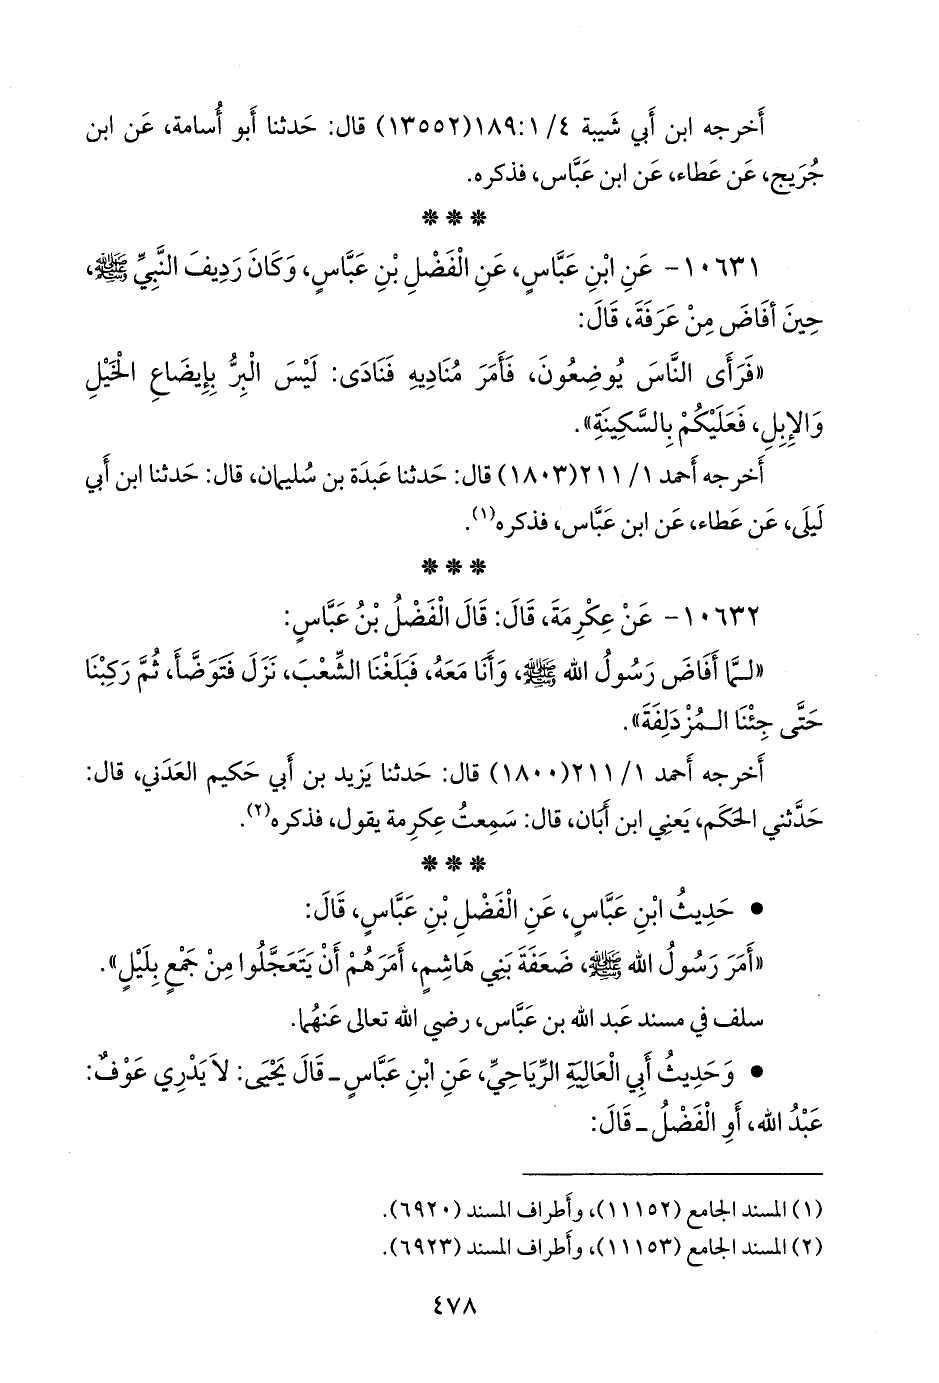 أَخرجه ابن أَبي شَيبة ٤/ ١٨٩:١(١٣٥٥٢) قال: حَدثنا أَبو أُسامة، عَن ابن
جُرَيج، عَن عَطاء، عَن ابن عَبَّاس، فذكره.
***
١٠٦٣١- عَنِ ابْنِ عَبَّاسٍ، عَنِ الْفَضْلِ بْنِ عَبَّاسٍ، وَكَانَ رَدِيفَ النَّبِيِّ ﷺ،
حِينَ أَفَاضَ مِنْ عَرَفَةَ، قَالَ:
«فَرَأَى النَّاسَ يُوضِعُونَ، فَأَمَرَ مُنَادِيهِ فَنَادَى: لَيْسَ الْبِرُّ بِإِيضَاعِ الْخَيْلِ
وَالإِبِلِ، فَعَلَيْكُمْ بِالسَّكِينَةِ».
أَخرجه أَحمد ١/ ٢١١(١٨٠٣) قال: حَدثنا عَبدَة بن سُليمان، قال: حَدثنا ابن أَبي
لَيلَى، عَن عَطاء، عَن ابن عَبَّاس، فذكره(١).
***
١٠٦٣٢- عَنْ عِكْرِمَةَ، قَالَ: قَالَ الْفَضْلُ بْنُ عَبَّاسٍ:
«لـمَّا أَفَاضَ رَسُولُ الله ﷺ، وَأَنَا مَعَهُ، فَبَلَغْنَا الشِّعْبَ، نَزَلَ فَتَوَضَّأَ، ثُمَّ رَكِبْنَا
حَتَّى جِئْنَا الـمُزْدَلِفَةَ».
أَخرجه أَحمد ١/ ٢١١(١٨٠٠) قال: حَدثنا يَزيد بن أَبي حَكيم العَدَني، قال:
حَدَّثني الحَكَم، يَعنِي ابن أَبَان، قال: سَمِعتُ عِكرِمة يقول، فذكره(٢).
***
● حَدِيثُ ابْنِ عَبَّاسٍ، عَنِ الْفَضْلِ بْنِ عَبَّاسٍ، قَالَ:
«أَمَرَ رَسُولُ الله ﷺ، ضَعَفَةَ بَنِي هَاشِمٍ، أَمَرَهُمْ أَنْ يَتَعَجَّلُوا مِنْ جَمْعٍ بِلَيْلٍ».
سلف في مسند عَبد الله بن عَبَّاس، رضي الله تعالى عَنهُما.
● وَحَدِيثُ أَبِي الْعَالِيَةِ الرِّيَاحِيِّ، عَنِ ابْنِ عَبَّاسٍ ـ قَالَ يَحْيَى: لاَ يَدْرِي عَوْفٌ:
عَبْدُ الله، أَوِ الْفَضْلُ ـ قَالَ:
(١) المسند الجامع (١١١٥٢)، وأَطراف المسند (٦٩٢٠).
(٢) المسند الجامع (١١١٥٣)، وأَطراف المسند (٦٩٢٣).
٤٧٨